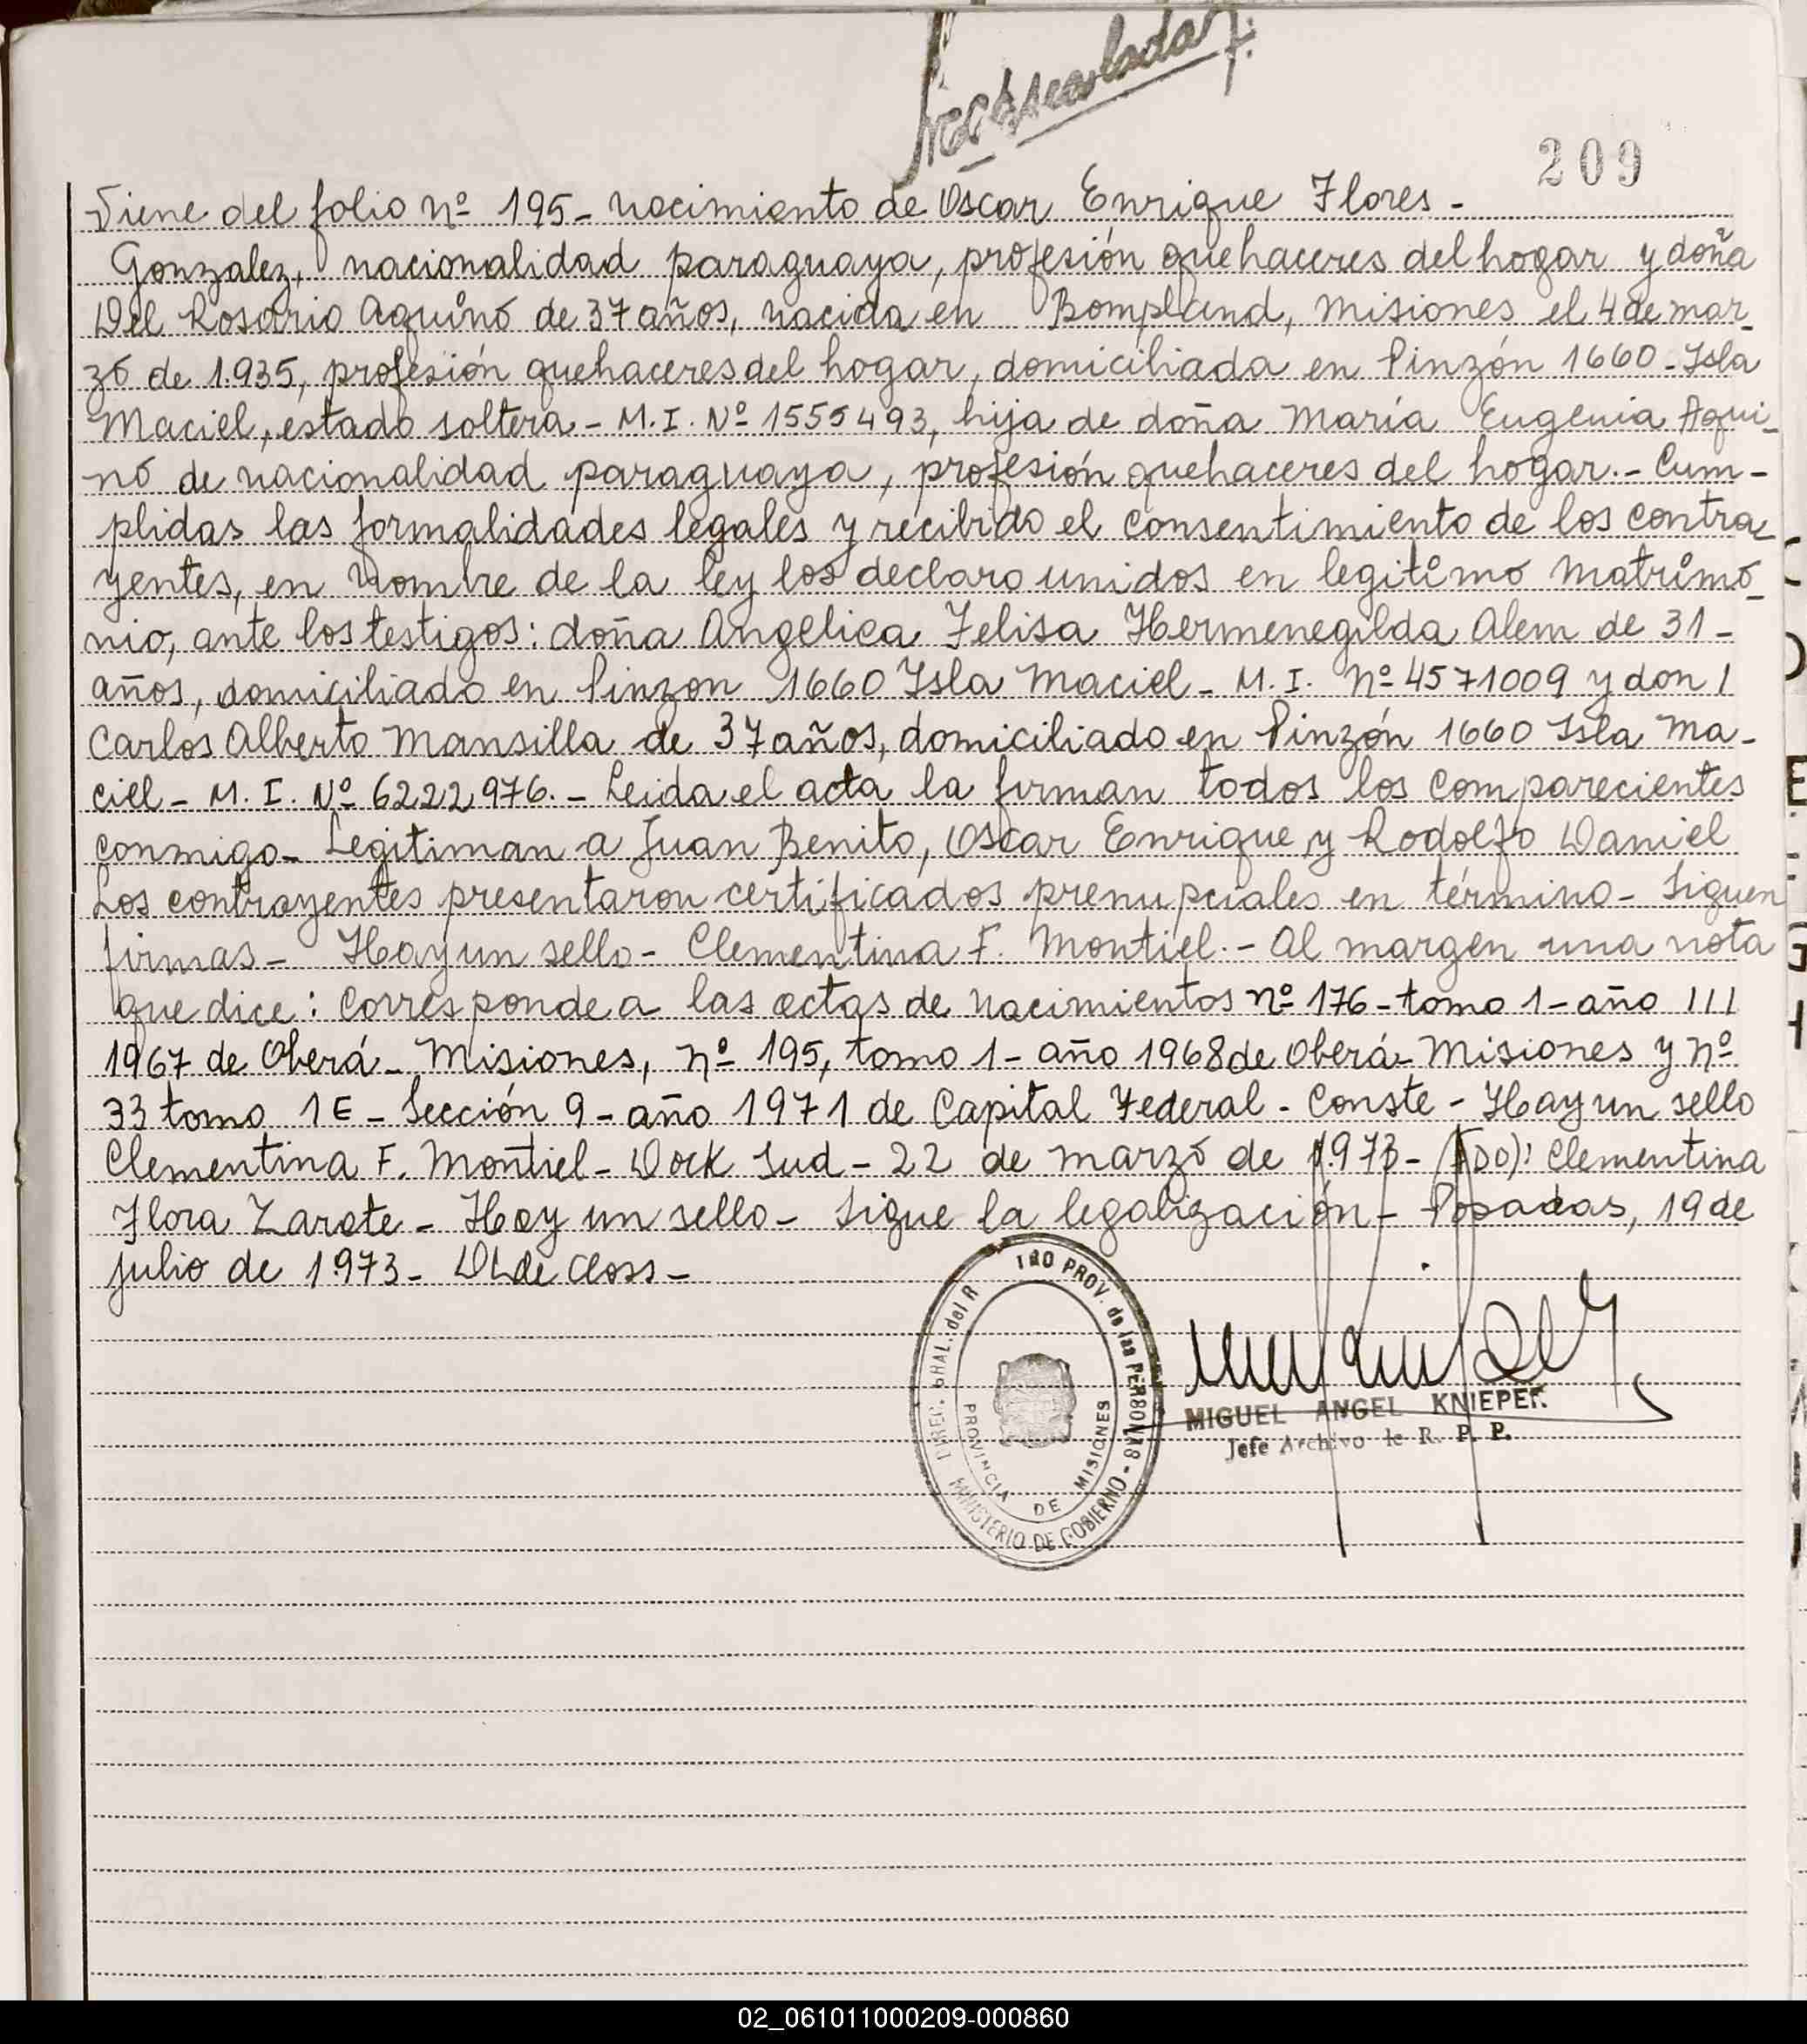 209
Viene del folio nº 195- nacimiento de Oscar Enrique Flores -
Gonzalez, nacionalidad paraguaya, profesión quehaceres del hogar y doña
Del Rosario Aquino de 37 años, nacida en Bompland, Misiones el 4 de mar-
zo de 1.935, profesión quehaceres del hogar, domiciliada en Pinzón 1660 - Isla
Maciel, estado soltera - M. I. Nº 1555493, hija de doña María Eugenia Aqui-
no de nacionalidad paraguaya, profesión quehaceres del hogar.- Cum-
plidas las formalidades legales y recibido el consentimiento de los contra-
yentes, en nombre de la ley los declaro unidos en legitimo matrimo-
nio, ante los testigos: doña Angelica Felisa Hermenegilda Alem de 31 -
años, domiciliado en Pinzon 1660 Isla Maciel - M. I. Nº 4571009 y don /
Carlos Alberto Mansilla de 37 años, domiciliado en Pinzón 1660 Isla Ma-
ciel - M. I. Nº 6222976. - Leida el acta la firman todos los comparecientes
conmigo - Legitiman a Juan Benito, Oscar Enrique y Rodolfo Daniel
Los contrayentes presentaron certificados prenupciales en término - Siguen
firmas - Hay un sello - Clementina F. Montiel.- Al margen una nota
que dice: Corresponde a las actas de nacimientos nº 176 - tomo 1 - año ///
1967 de Oberá - Misiones, nº 195, tomo 1 - año 1968 de Oberá - Misiones y nº
33 tomo 1E - Sección 9 - año 1971 de Capital Federal - Conste - Hay un sello
Clementina F. Montiel - Dock Sud - 22 de marzo de 1.973 - (FDO): Clementina
Flora Zarate - Hay un sello - Sigue la legalización - Posadas, 19 de
julio de 1.973 - DL de Closs -
DIREC. GRAL. del R TRO PROV. de las PERSONAS -
MINISTERIO DE GOBIERNO
PROVINCIA DE MISIONES
MIGUEL ANGEL KNIEPER
Jefe Archivo de R. P. P.
02_061011000209-000860